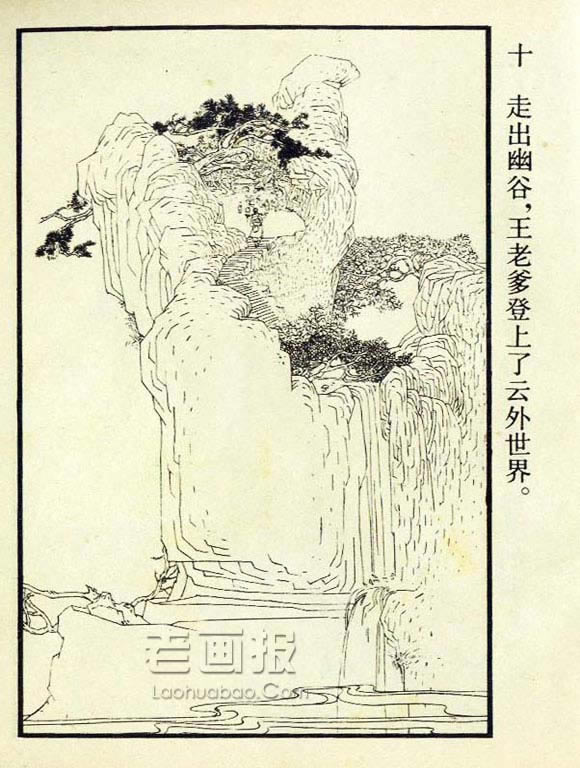 十 走出幽谷，王老爹登上了云外世界。
老画报
Laohuabao.Com